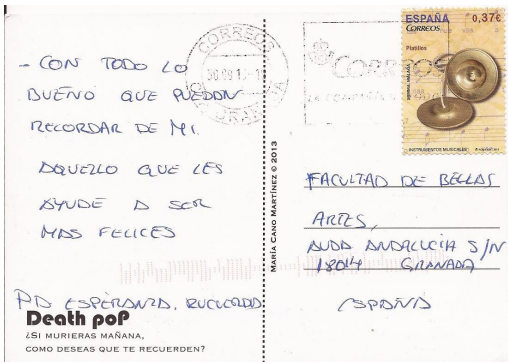 - CON TODO LO
BUENO QUE PUEDAN
RECORDAR DE MI.
AQUELLO QUE LES
AYUDE A SER
MAS FELICES
PD ESPERANZA.
Death poP
¿SI MURIERAS MAÑANA,
COMO DESEAS QUE TE RECUERDEN?
MARÍA CANO MARTÍNEZ © 2013
CORREOS
CORREOS
ESPAÑA 0,37€
CORREOS
Platillos
INSTRUMENTOS MUSICALES
FACULTAD DE BELLAS
ARTES,
AVDA ANDALUCIA S/N
18014 GRANADA
ESPAÑA